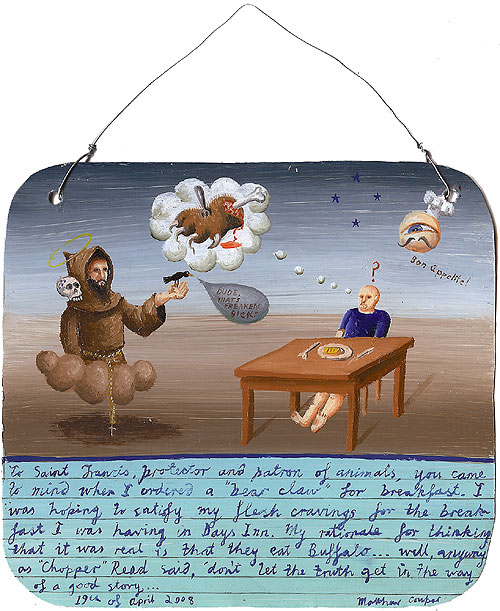 Bon Appetite!
DUDE,
THATS
FREAKEN
SICK!
?
To Saint Francis, protector and patron of animals, you came
to mind when I ordered a "bear claw" for breakfast. I
was hoping to satisfy my flesh cravings for the break-
fast I was having in Days Inn. My rationale for thinking
that it was real is that they eat Buffalo... well, anyway
as "Chopper" Read said, 'don't let the truth get in the way
of a good story...
19th of april 2008
Matthew